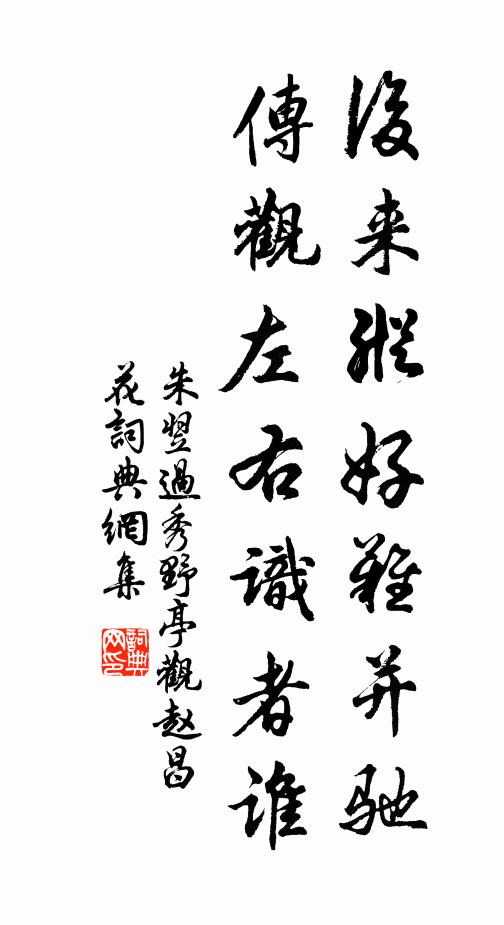 後来縱好難并馳
傳觀左右識者誰
朱翌過秀野亭觀赵昌
花詞典網集
詞典网印